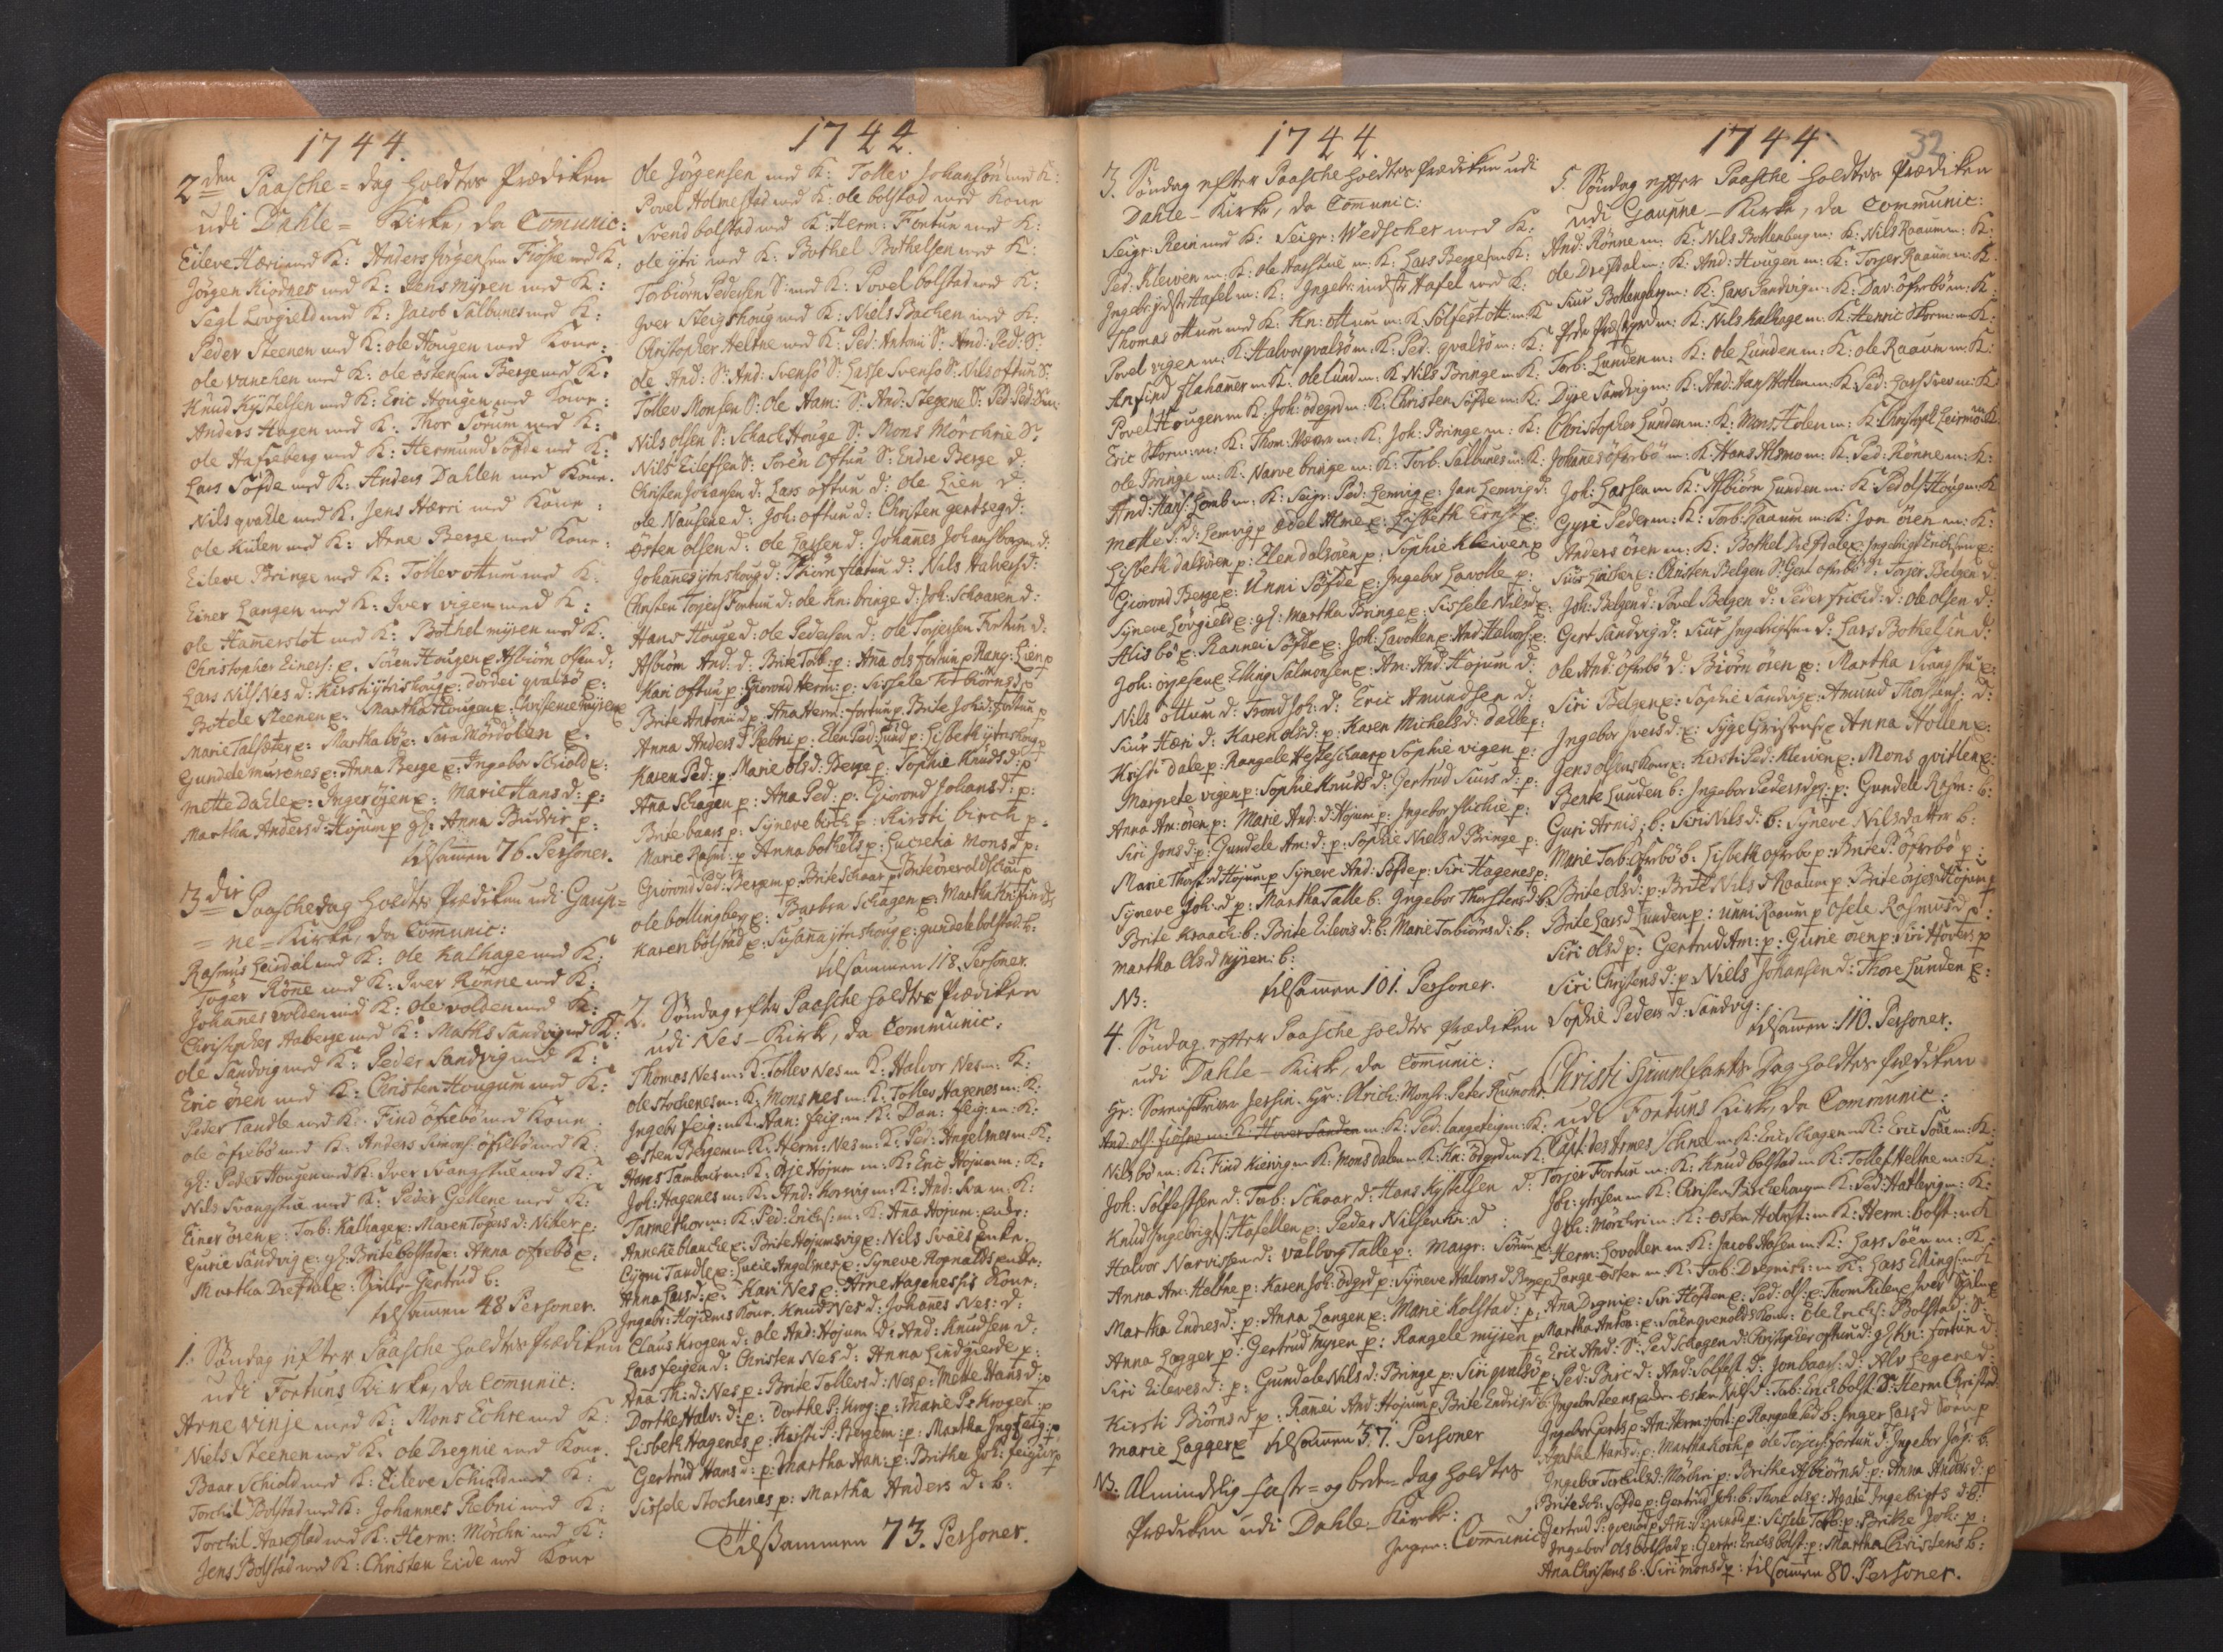 1744.
2den Paasche=dag holdtes Prædiken
udi Dahle=Kirke, da Comunic:
Eileve Hæri med K: Anders Jörgensen Fiösne med K:
Jörgen Kiodnes med K: Jens Myren med K:
Segl Lovgield med K: Jacob Salbunes med K:
Peder Steenen med K: ole Hougen med Kone:
ole vanchen med K: ole östensen Berge med K:
Knud Kystelsen med K: Eric Hougen med Kone:
Anders Hagen med K: Thor Sorum med K:
ole Hafreberg med K: Hermund Söfde med K:
Lars Söfde med K: Anders Dahlen med Kone.
Nils qvalle med K. Jens Hærri med Kone:
ole Kilen med K: Arne Berge med Kone:
Eileve Bringe med K: Tollev ottum med K.
Einer Langen med K: Iver vigen med K:
ole Hamerslot med K: Bothel myren med K.
Christopher Einers: e. Sören Hougen e Asbiörn olsen d:
Lars Nils Nes d: Kirsti ytrishoug e: dordei qvalsö e:
Botele Steenen e: Martha Hougen e: Christence myren e
Marie Talsæter e: Martha bö e: Sara Mördölen e.
Gundele murenes e: Anna Berge e: Ingebor Schiold e:
mette Dahle e: Inger öjen e: Marie Hans d: p:
Martha Anders d: Hojum p gl: Anna Budvir p:
tilsamen 76. Personer.
3die Paaschedag holdtes Prædiken udi Gaup=
=ne=Kirke, da Comunic:
Rasmus Leirdal med K: ole Kalhage med K:
Töger Röne med K: Iver Rönne med K:
Johanes volden med K: ole volden med K:
Christopher Haberge med K: Maths Sandvig med K:
ole Sandvig med K: Peder Sandvig med K:
Eric ören med K: Christen Hougum med K:
Peder Tandle med K: Find öfrebö med Kone
ole öfrebö med K: Anders Simons: öfrebö med K:
gl: Peder Hougen med K: Iver Svangstue med K:
Nils Svangstue med K: Peder Gullene med K:
Einer ören e: Torb: Kalhage e: Maren Tögers d: Nitter p:
Gurie Sandvig e: gl: Brite bolstad e: Anna ofrebö e:
Martha Drefdal e: Pille=Gertrud b:
tilsamen 48 Personer.
1. Söndag efter Paasche holdtes Prædiken
udi Fortuns Kirke, da Comunic:
Arne Vinje med K: Mons Echre med K:
Niels Steenen med K: ole Dregnie med Kone.
Baar Schiold med K: Eileve Schiold med K:
Torchil Bolstad med K: Johannes Rebni med K:
Torchil Harestad med K: Herm: Mörchri med K:
Jens Bolstad med K: Christen Eide med Kone
1744.
ole Jörgensen med K: Tollev Johansön med K:
Povel Holmestad med K: ole bolstad med Kone
Svend bolstad med K: Herm: Fortun med K:
ole ytri med K: Bothel Bothelsen med K:
Torbiörn Pedersen S: med K: Povel bolstad med K:
Iver Steigshoug med K: Niels Bachen med K:
Christopher Heltne med K: Ped: Antoni S: And: Ped: S:
ole And: S: And: Svensö S: Lasse Svensö S: Nils oftun S:
Tollev Monsen S: ole Ham: S: And: Stegene S: Ped: Ped: Sen:
Nils olsen S: Schach Houge S: Mons Mörchrie S:
Nils Eilefsen S: Sorén oftun S: Endre Berge d:
Christen Johansen d: Lars oftun d: ole Lien d:
ole Nausene d: Joh: oftun d: Christen gertseg d:
östen olsen d: ole Larsen d: Johanes Johans borgen d:
Johanes ytrishoug d: Biörn flatun d: Nils Halvers d:
Christen Torjers Fortun d: ole Kn: bringe d: Joh: Schaaren d:
Hans Houge d: ole Pedersen d: ole Torjersen Fortun d:
Asbiörn And: d: Brite Torb: p: Aña ols fortun p Rang: Lien p
Kari oftun p: Giorond Herm: p: Sissele Torbiörns d p
Brite Antoni d p: Aña Herm: fortun p. Brite Joh: d: fortun p
Anna Anders d Rebni p: Elen Ped: Lund p: Lisbeth ytrishoug p
Karen Ped: p: Marie ols d: Berge p: Sophie Knuds d: p
Aña Schagen p: Ana Ped: p. Giorond Johans d: p:
Brite baars p: Syneve birch p: Kirsti birch p.
Marie Rasm: p Anna bothels p: Lucretia Mons d p:
Giorond Ped: Bergem p: Brite Schaar p Brite öreroldschau p
ole bollingberg e: Barbra Schagen e: Martha Knisun d e
Karen bolstad e: Susana ytrishoug e: gundele bolstad: b:
tilsamen 118. Personer.
2. Söndag efter Paasche holdtes Prædiken
udi Nes-Kirk, da Communic:
Thomas Nes m: K: Tollev Nes m K: Halvor Nes m: K:
ole Stochenes m: K: Mons Nes m: K: Tollev Hagenes m: K:
Ingebr feig: m K: Han: feig: m K: Dan: feig: m: K:
östen Bergem m: K: Herm: Nes m: K: Ped: Angelsnes m: K:
Hans Tambour m: K: örje Hojum m: K: Eric Hojum m: K:
Joh: Hagenes m: K: And: Korsvig m: K: And: Sva m: K:
Tarmethor m: K: Ped: Erichs: m: K: Ana Hojum: enke:
Anneke blanche e: Brite Hojumsvig e: Nils Svaies enke.
Cygni Tandle e: Lucie Angelsnes e: Syneve Rognalds enke:
Anna Lars d: e: Kari Nes e: Arne Hagenesis Kone:
Ingebr: Hojums Kone. Knud Nes d: Johanes Nes: d:
Claus Krogen d: ole And: Hojum d: And: Knudsen d:
Lars feigen d: Christen Nes d: Anna Lindgierde p:
Aña Th: d: Nes p: Brite Tollevs d: Nes p: Mette Hans d: p
Dorthe Halv: d: p: Dorthe P: Krog: p: Marie Ps Krogen: p
Lisbeth Hagenes p: Kirsti P: Bergem: p: Martha Ing: feig: p:
Gertrud Hans d: p: Martha Han: p: Brithe Joh: feigur p
Sissele Stochenes p: Martha Anders d: b:
Tilsammen 73. Personer.
1744.
3. Söndag efter Paasche holdtes Prædiken udi
Dahle-Kirke, da Comunic:
Seigr: Rein med K: Seigr: Wedscher med K:
Ped: Kleiven m: K: ole Harstue m: K: Lars Berge m K:
Ingebr ydstr Hafel m: K: Ingebr: indstr Hafel med K:
Thomas ottum med K: Kn: ottum m: K Sölfest ott: m: K
Povel vigen m: K: Halvor qvalsö m: K: Ped: qvalsö m: K:
Anfind flahamer m K: ole Lund m: K Nils Bringe m K:
Povel Hougen m K: Joh: ödegrd m: K: Christen Söfde m: K:
Eric Skorn: m: K: Thom: Næss m: K: Joh: Bringe m: K:
ole Bringe m: K: Narve bringe m: K: Torb: Salbunes m: K:
And: Hans: Lomb m: K: Seigr: Ped: Lemvig e: Jan Lemvig d:
Mette S: d: Lemvig p edel Alme e: Lisbeth Ernst e:
Lisbeth dalsören p: Elen dalsören p: Sophie Kleiven p
Giorond Berge e: Unni Söfde e: Ingebor Lavolle p:
Syneve Lövgield e: gl: Martha Bringe e: Sissele Nils d e:
Alis bö e: Rannei Söfde e: Joh: Lavollen e: And: Halvors: e:
Joh: örjesen e Elling Salmonsen e: Am: And: Hojum d:
Nils ottum d: Trond Joh: d: Eric Amundsen d:
Siur Hæri d: Karen ols d: p: Karen Michels d: dalle p:
Kristi dale p: Rangele Hesteschaar p Sophie vigen p:
Margrete vigen p: Sophie Knuds d: Gertrud Siurs d: p:
Anna Am: osen p: Marie And: d: Hojum p: Ingebor flichie p:
Siri Jons d: p: Gundele Am: d: p: Sophie Niels d: Bringe p:
Marie Thorst: d Hojum p Syneve And: Söfde p: Siri Hagenes p:
Syneve Joh: d p: Martha Talle b: Ingebor Thorstens d: b:
Brite Kraach: b: Brite Eilevis d: b: Marie Torbiörns d: b:
Martha Ols d Myren: b:
NB: tilsamen 101. Personer.
4. Söndag efter Paasche holdtes Prædiken
udi Dahle-Kirk, da Comunic:
Hr: Sorenskriver Jersin. Hr: Ulrich: Monsr: Peter Rumohr.
And: ols: fiösne m: K Haver Sanden m: K: Ped: langeteig m: K:
Nils bö m: K: Find Kiervig m K: Mons dalen m K: Kn: ödgrd m K:
Joh: Sölfestsen d: Torb: Schaar d: Hans Kystelsen d:
Knud Ingebrigts: Hafellen e: Peder Nilsen Kn: d:
Halvor Narvissen d: Valborg Talle p: Margr: Sorum e:
Anna Am: Heltne p: Karen Joh: ödgrd p: Syneve Halvers d.
Martha Endres d: p: Anna Langen e: Marie Kolstad: p:
Anna Lagger p: Gertrud Myren p: Rangele myren p
Siri Eileves d: p: Gundele Nils d: Bringe p: Siri qvalsö p:
Kirsti Biörns d p: Ranei And: Hojum p Brite Endris d b:
Marie Lagger e tilsamen 37. Personer
NB. Almindelig faste=og bede=dag holdtes
Prædiken udi Dahle-Kirke:
Ingen: Comunic
1744. 32
5. Söndag efter Paasche holdtes Prædiken
udi Gaupne-Kirke, da Communic:
And: Rönne m: K: Nils Bollenberg m: K: Nils Raaum m: K:
ole Drefdal m: K: And: Hougen m: K: Torjer Raaum m: K:
Siur Bollengberg m: K: Lars Sandvig m: K: Dav: öfrebö m: K:
Peder Præstgrd m: K: Nils Kalhage m: K: Henric Skorn: m: K:
Torb: Lunden m: K: ole Lunden m: K: ole Raaum m: K:
Dyre Sandvig m: K: And: Hans Hollen m: K: Ped: Larssen m: K
Christopher Lunden m: K: Mons Holen m: K: Christoph Leirmo m K
Johanes öfrebö m: K: Hans Alsmo m: K: Ped: Rönne m: K:
Joh: Larsen m K: Asbiörn Lunden m: K: Ped ols: Houg m: K
Gyri Peder m: K: Torb: Raaum m: K: Jon ören m: K:
Anders ören m: K: Bothel Drefdal e: Ingebrigt Erichsen e:
Siur Larsen e: Christen Belgen S: Gert ofrebö S: Torjer Belgen d:
Joh: Belgen d: Povel Belgen d: Peder frich d: d: ole olsen d:
Gert Sandvig d: Siur Ingebrigtsen d: Lars Bothelsen d:
ole And: öfrebö d: Biörn ören e: Martha Svangstu e:
Siri Belgen e: Sophie Sandvig e: Amund Thorstens: d:
Ingebor Ivers d: e: Syge Christensis e Anna Hollen e:
Jens olsens Kone e: Kirsti Ped: Kleiven e: Mons qvitlen e:
Bente Lunden b: Ingebor Peders d: p: Gundele Rasm: b:
Guri Arnis: b: Siri Nils d: b: Syneve Nilsdatter b:
Marie Torb: Ofrebö b: Lisbeth ofrebo p: Brite P: öfrebö p:
Brite ols d: p: Brite Nils d Raaum p: Brite örjes d Hojum p
Brite Lars d Lunden p: unni Raaum p Osele Rasmus d p:
Siri ols d p: Gertrud Am: p: Gurie ören p: Siri Hovers p
Siri Christens d: p: Niels Johansen d: Thore Lunden e:
Sophie Peders d: Sandvig:
tilsamen: 110. Personer.
Christi Himmelfarts Dag holdtes Prædiken
udi Fortuns Kirk, da Communic:
Capt: des Armes Schnel m: K: Eric Schagen m K: Eric Söie m: K:
Torjer Fortun m: K: Knud bolstad m: K: Tollef Heltne m: K:
Joh: m K: Christen m K: Ped: Hatlevig m: K:
Joh: Mörchri m: K: östen Holmst: m K: Herm: bolst: m K
Herm: Lovollen m: K: Jacob Hasen m: K: Lars Söen m: K:
Lange östen m: K: Torb: Dregnich: m K: Lars Ellings: m K
Ana Dregni e: Siri Hafsten e: Ped: ols: e: Thom: Kilen e Iver Seim e
Martha Anton: e: Sören qvenolds Kone: Ole Erichs: Bolstad: S:
Eric And: S: Ped Schagen d: Christopher oftun d: gl: Kn: fortun d:
Ped: Birc d: And: Sölfest d: Jon baars: d: Alv Legere d:
Ingebr Steens östen Nils d: Torb: Erich bolst: d: Herm Christ d:
Ingebor Gerts p: An: Herm: fort: p Rangele Ped b: Inger Lars d Sören p
Agathe Hans d: p: Martha Koch p ole Torjers fortun d: Ingebor Jas: b:
Ingebor Torchils d: Mörchri p: Brithe Asbiörns d: p: Anna Anders d: p
Brite Joh: Söfde p: Gertrud Joh: b: Thore ols p: Agate Ingebrigts d: b:
Gertrud P: qvenold p An: P: p: Sissele Torb: p: Brithe Joh: p:
Ingebor ols bolstad p: Gertr: Erichs bolst: p: Martha Christens b:
Ana Christens b: Siri Mons d p: tilsamen 80. Personer.